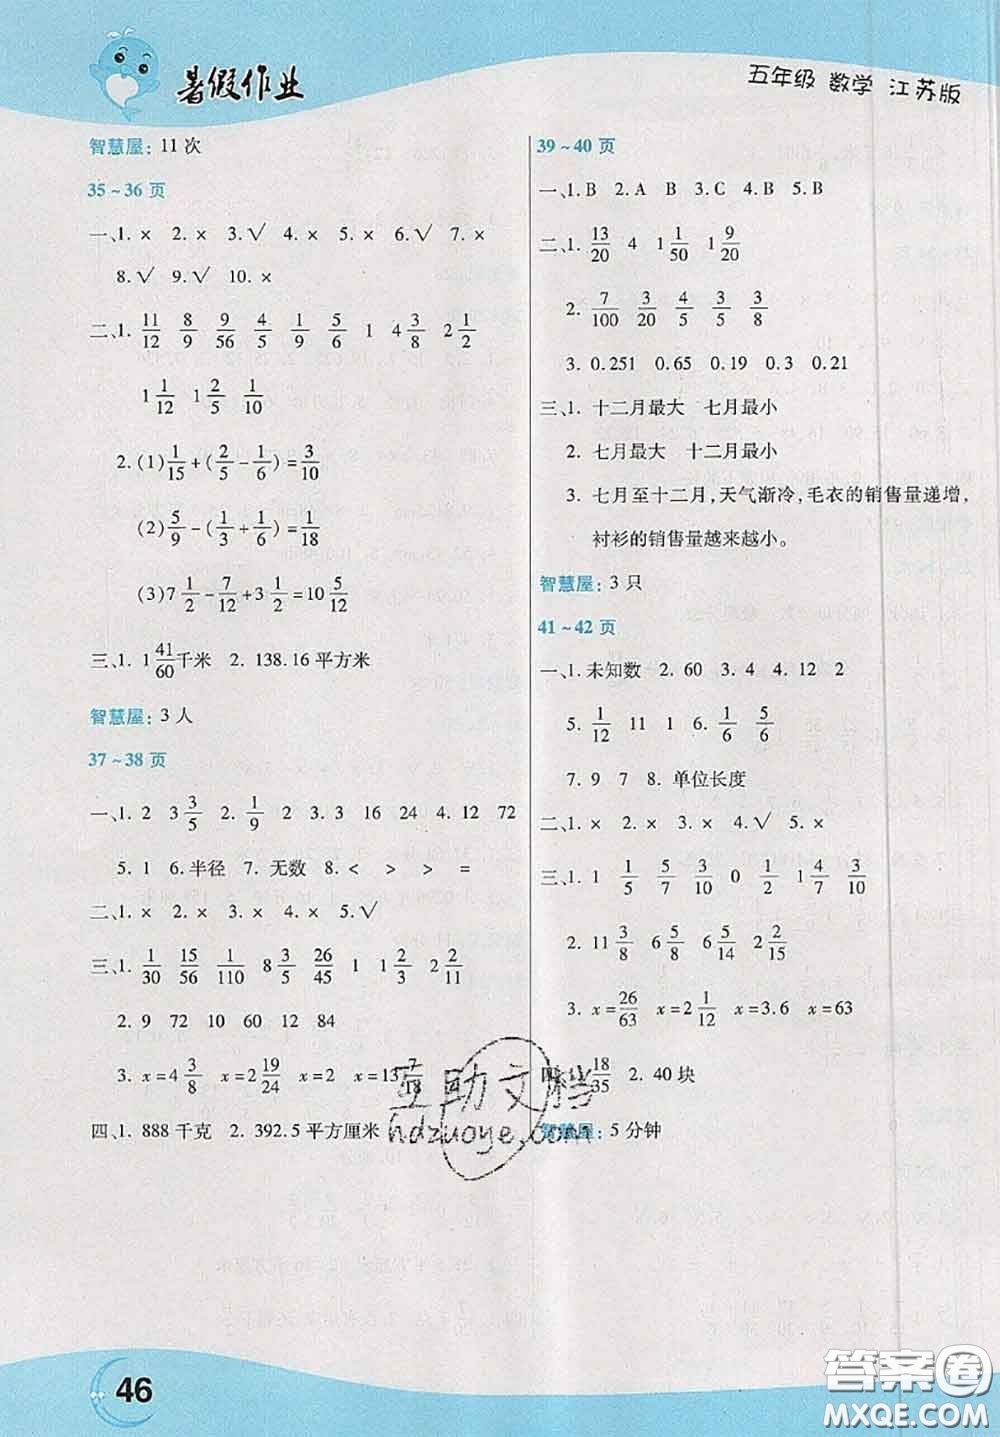 暑假作业
五年级 数学 江苏版
智慧屋：11次
35～36页
一、1.× 2.× 3.√ 4.× 5.× 6.√ 7.×
8.√ 9.√ 10.×
二、1. 11/12 8/9 9/56 4/5 1/91 5/6 1 4 3/8 2 1/2
1 1/12 1 2/5 1/10
2.(1) 1/15+(2/5-1/6)=3/10
(2) 5/9-(1/3+1/6)=1/18
(3) 7 1/2-7/12+3 1/2=10 5/12
三、1. 1 41/60千米 2. 138.16平方米
智慧屋：3人
37～38页
一、1. 2 3 3/5 2. 1/9 2 3. 3 16 24 4. 12 72
5. 1 6. 半径 7. 无数 8. < > > =
二、1.× 2.× 3.× 4.× 5.√
三、1. 1/30 15/56 1/110 8 3/5 26/45 1 1 2/3 2 2/11
2. 9 72 10 60 12 84
3. x=4 3/8 x=2 19/24 x=2 x=13 7/18
四、1. 888千克 2. 392.5平方厘米
39～40页
一、1. B 2. A B 3. C 4. B 5. B
二、1. 13/20 4 1 1/50 1 9/20
2. 7/100 3/20 4/5 3/5 3/8
3. 0.251 0.65 0.19 0.3 0.21
三、1. 十二月最大 七月最小
2. 七月最大 十二月最小
3. 七月至十二月，天气渐冷，毛衣的销售量递增，
衬衫的销售量越来越小。
智慧屋：3只
41～42页
一、1. 未知数 2. 60 3. 4 4. 12 2
5. 1/12 11 1 6. 1/6 5/6
7. 9 7 8. 单位长度
二、1.× 2.× 3.× 4.√ 5.×
三、1. 1 1/5 5/7 3/10 0 1/2 4/7 3/10
2. 11 3/8 6 5/8 6 5/14 2 2/15
3. x=26/63 x=2 1/12 x=3.6 x=63
四、1. 18/35 2. 40块
智慧屋：5分钟
互助文档
hdzuoye.com
46
答案圈
MXQE.COM